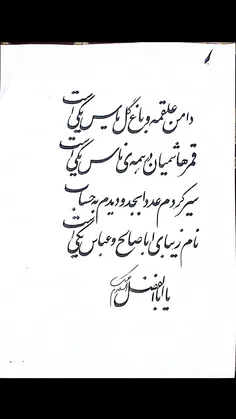 دامن علقمه و باغ گل یاس یکی است
قمر هاشمیان در همه ی ناس یکی است
سیر کردم عدد ابجد و دیدم به حساب
نام زیبای اباصالح و عباس یکی است
یا اباالفضل